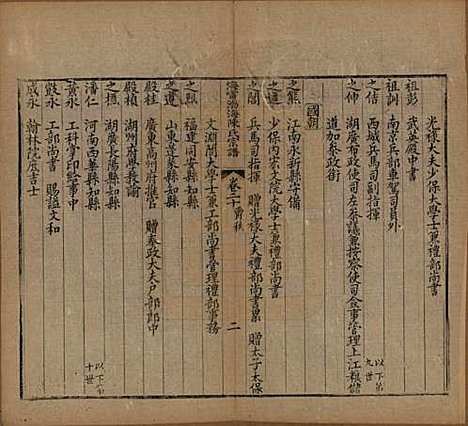 光祿大夫少保大學士兼禮部尚書
祖彭　武英殿中書
祖訓　南京兵部車駕司員外
之佶　西城兵馬司副指揮
之伸　湖廣布政使司左叅議兼按察使司僉事管理上江糧儲
道加叅政銜
以下第九世
國朝
之熊　江南永新縣守備
之遴　少保內弘文院大學士禮部尚書
之閶　兵馬司指揮　贈光祿大夫禮部尚書累　贈太子太保
海寧渤海陳氏宗譜　卷二十　爵秩　二
文淵閣大學士兼工部尚書管理禮部事務
之飄　福建　縣知縣
之遵　山東　縣知縣
殿柱　廣東高州府推官　贈奉政大夫戶部郎中
殿楨　湖州府學教諭
之樞　湖廣　陽縣知縣
潘仁　河南西華縣知縣
黃永　工科掌印給事中
敱永　工部尚書　賜諡文和
成永　翰林院庶吉士
以下第十世